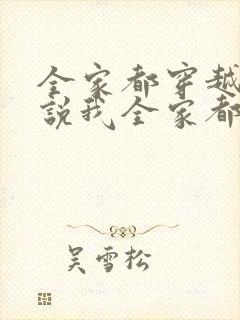 全家都穿越
說我全家都
吴雪松